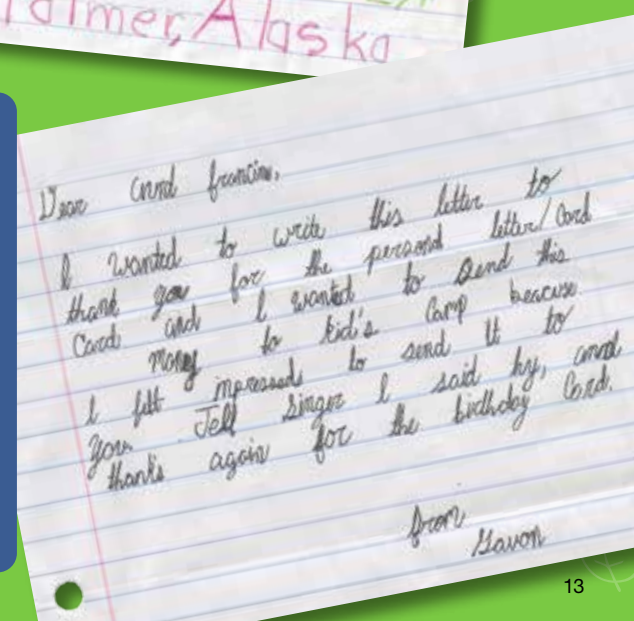 Palmer, Alaska
Dear annd francine,
I wanted to write this letter to
thank you for the personal letter/Card
Card and I wanted to send this
money to kid's Camp beacuse
I felt inpressed to send it to
you. Tell Singer I said hy, annd
thanks again for the bithday Card.
from
Gavon
13